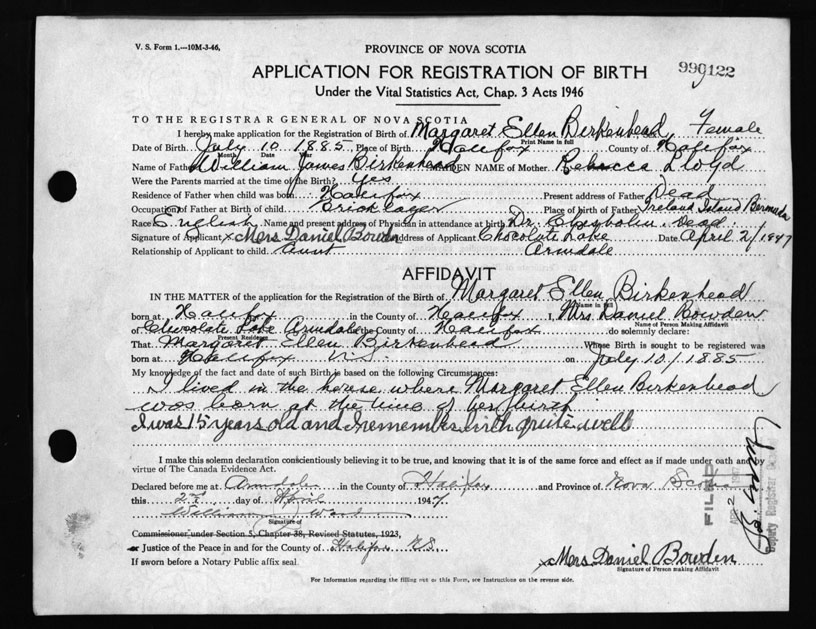 V. S. Form 1.—10M-3-46.
PROVINCE OF NOVA SCOTIA
APPLICATION FOR REGISTRATION OF BIRTH
990122
Under the Vital Statistics Act, Chap. 3 Acts 1946
TO THE REGISTRAR GENERAL OF NOVA SCOTIA
I hereby make application for the Registration of Birth of Margaret Ellen Birkenhead, Sex Female
Print Name in full
Date of Birth July 10 1885 Place of Birth Halifax County of Halifax
Month Date Year
Name of Father William James Birkenhead MAIDEN NAME of Mother Rebecca Lloyd
Were the Parents married at time of the Birth? Yes
Residence of Father when child was born Halifax Present address of Father Dead
Occupation of Father at Birth of child Bricklayer Place of birth of Father Ireland Island Bermuda
Race English Name and present address of Physician in attendance at birth Dr. Dead
Signature of Applicant x Mrs Daniel Bowden Address of Applicant Chocolate Lake Date April 2/1947
Relationship of Applicant to child Aunt Armdale
AFFIDAVIT
IN THE MATTER of the application for the Registration of the Birth of Margaret Ellen Birkenhead
Name in full
born at Halifax in the County of Halifax I, Mrs Daniel Bowden
Name of Person Making Affidavit
of Chocolate Lake Armdale County of Halifax do solemnly declare:
Present Residence
That Margaret Ellen Birkenhead Whose Birth is sought to be registered was
born at Halifax N.S. on July 10/1885
My knowledge of the fact and date of such Birth is based on the following Circumstances:
I lived in the house where Margaret Ellen Birkenhead
was born at the time of her birth
I was 15 years old and I remember birth quite well
I make this solemn declaration conscientiously believing it to be true, and knowing that it is of the same force and effect as if made under oath and by
virtue of The Canada Evidence Act.
Declared before me at Armdale in the County of Halifax and Province of Nova Scotia
this 2nd day of April 1947
William
Signature of
Commissioner under Section 5, Chapter 38, Revised Statutes, 1923,
or Justice of the Peace in and for the County of Halifax N.S.
If sworn before a Notary Public affix seal
x Mrs Daniel Bowden
Signature of Person making Affidavit
For Information regarding the filling out of this Form, see Instructions on the reverse side.
FILED
Deputy Registrar